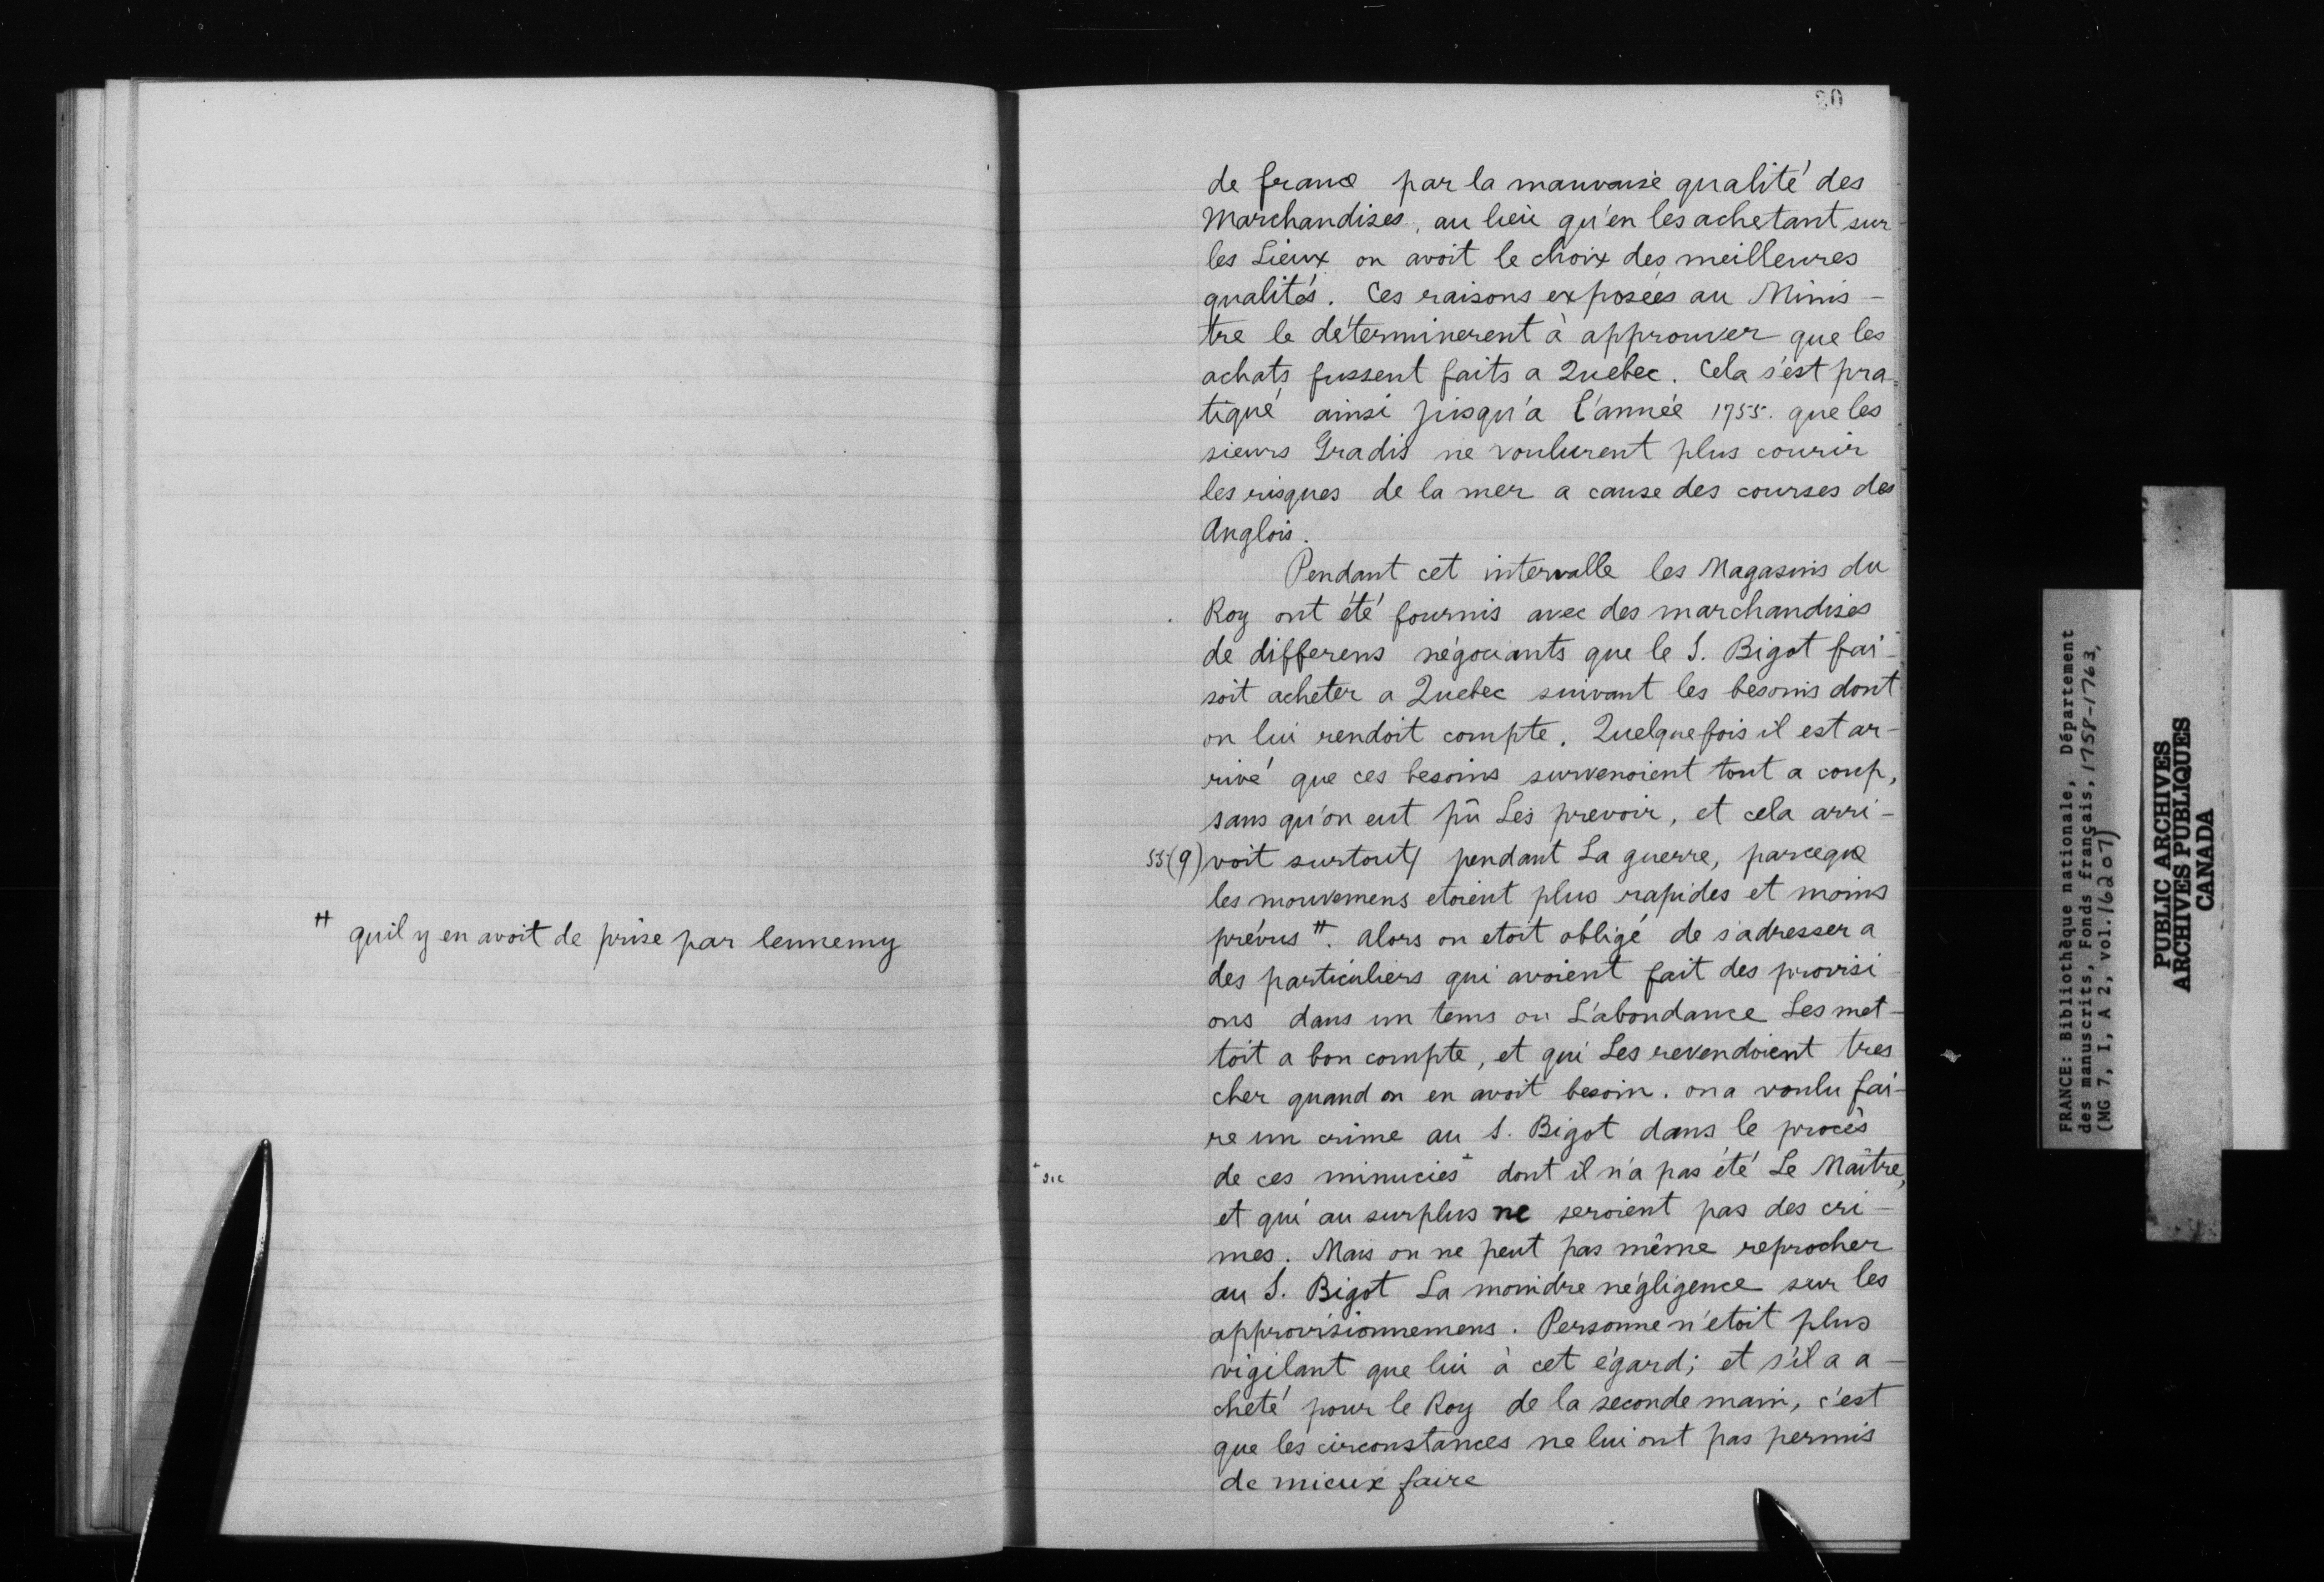 # quil y en avoit de prise par lennemy
de france par la mauvaise qualité des
Marchandises, au lieu qu'en les achetant sur
les Lieux on avoit le choix des meilleures
qualités. Ces raisons exposées au Minis-
tre le déterminerent à approuver que les
achats fussent faits a Quebec. Cela s'est pra-
tiqué ainsi jusqu'a l'année 1755. que les
sieurs Gradis ne voulurent plus courir
les risques de la mer a cause des courses des
Anglois.
Pendant cet intervalle les Magasins du
Roy ont été fournis avec des marchandises
de differens négociants que le S. Bigot fai-
soit acheter a Quebec suivant les besoins dont
on lui rendoit compte. Quelquefois il est ar-
rivé que ces besoins survenoient tout a coup,
sans qu'on eut pû Les prevoir, et cela arri-
55(9) voit surtout/ pendant La guerre, parceque
les mouvemens etoient plus rapides et moins
prévus #. alors on etoit obligé de s'adresser a
des particuliers qui avoient fait des provisi-
ons dans un tems ou L'abondance Les met-
toit a bon compte, et qui Les revendoient tres
cher quand on en avoit besoin. on a voulu fai-
re un crime au S. Bigot dans le procès
+ sic
de ces minucies + dont il n'a pas été Le Maître,
et qui au surplus ne seroient pas des cri-
mes. Mais on ne peut pas même reprocher
au S. Bigot La moindre négligence sur les
approvisionnemens. Personne n'etoit plus
vigilant que lui à cet égard; et s'il a a-
cheté pour le Roy de la seconde main, c'est
que les circonstances ne lui ont pas permis
de mieux faire
FRANCE: Bibliothèque nationale, Département
des manuscrits, Fonds français, 1758-1763,
(MG 7, I, A 2, vol. 16207)
PUBLIC ARCHIVES
ARCHIVES PUBLIQUES
CANADA